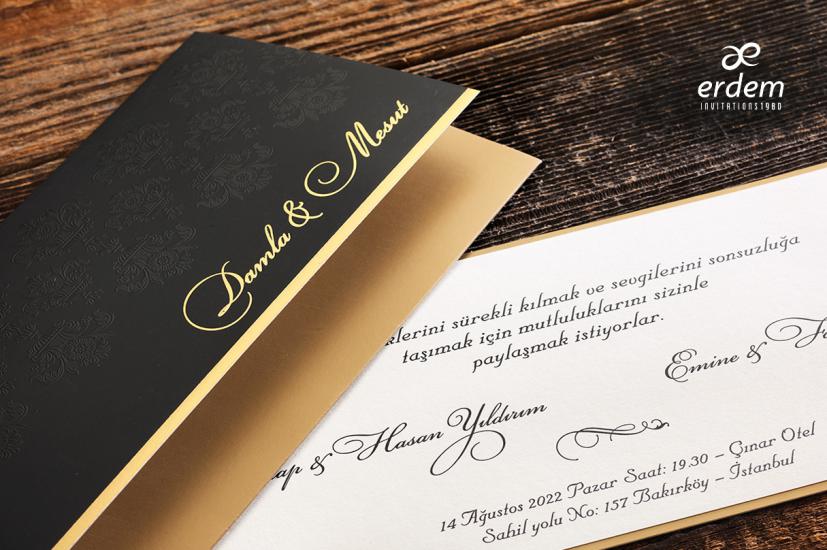 erdem
INVITATIONS1980
Damla & Mesut
sürekli kılmak ve sevgilerini sonsuzluğa
taşımak için mutluluklarını sizinle
paylaşmak istiyorlar.
& Hasan Yıldırım
Emine &
14 Ağustos 2022 Pazar Saat: 19.30 – Çınar Otel
Sahil yolu No: 157 Bakırköy – İstanbul